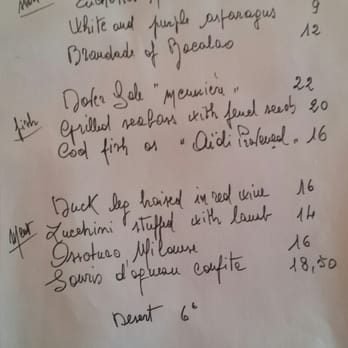 White and purple asparagus 9
Brandade of Bacalao 12
Dover Sole "Meunière" 22
fish Grilled seabass with fenel seeds 20
Cod fish as "Aïoli Provençal" 16
Duck leg braised in red wine 16
Meat Zucchini stuffed with lamb 14
Ossobuco Milanese 16
Souris d'agneau confite 18,50
Desert 6€